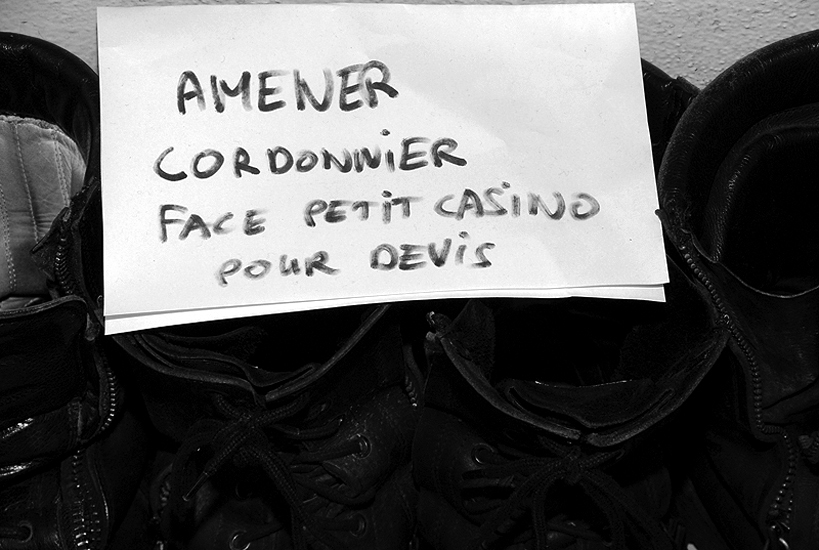 AMENER
CORDONNIER
FACE PETIT CASINO
POUR DEVIS